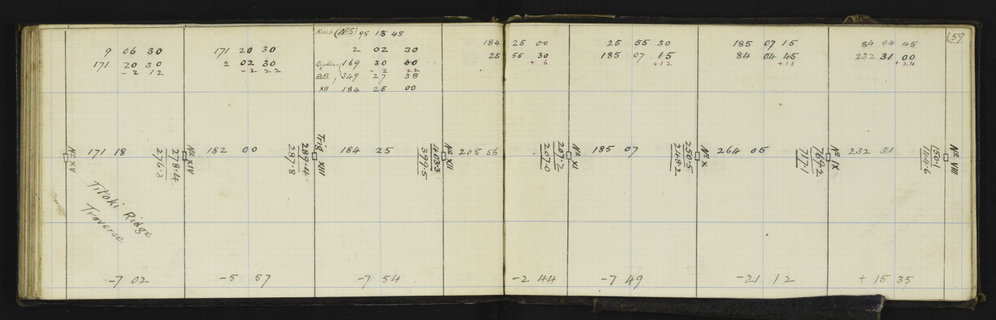 Knob (No 5) 95 18 45
(59)
9 06 30
171 20 30
2 02 30
184 25 00
25 55 30
185 07 15
84 04 45
171 20 30
2 02 30
169 30 00
25 56 30
185 07 15
84 04 45
232 31 00
- 2 12
- 2 22
- 2 22
+ 6
+ 12
+ 18
+ 24
BB 349 27 38
XII 184 25 00
No XV
171 18
278.4
276.3
No XIV
182 00
289.4
287.8
Trig XIII
184 25
403.3
399.5
No XII
205 56
207.2
207.0
No XI
185 07
250.5
248.2
No X
264 05
769.2
717.1
No IX
232 31
No VIII
Titoki Ridge
Traverse
-7 02
-5 57
-7 54
-2 44
-7 49
-21 12
+ 15 35